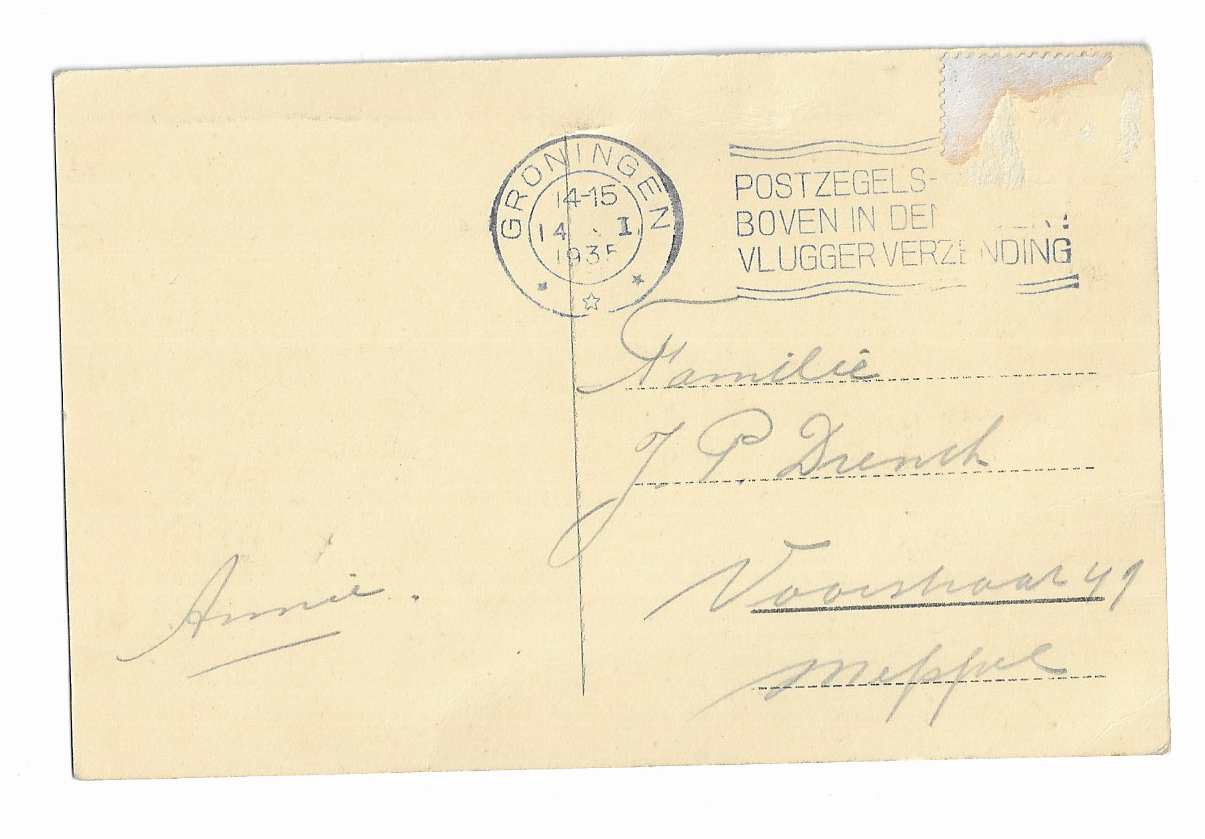 GRONINGEN
14-15
14 I
1935
POSTZEGELS-
BOVEN IN DEN
VLUGGER VERZENDING
Familie
J. P. Drenth
Voorstraat 49
Meppel
Annie.